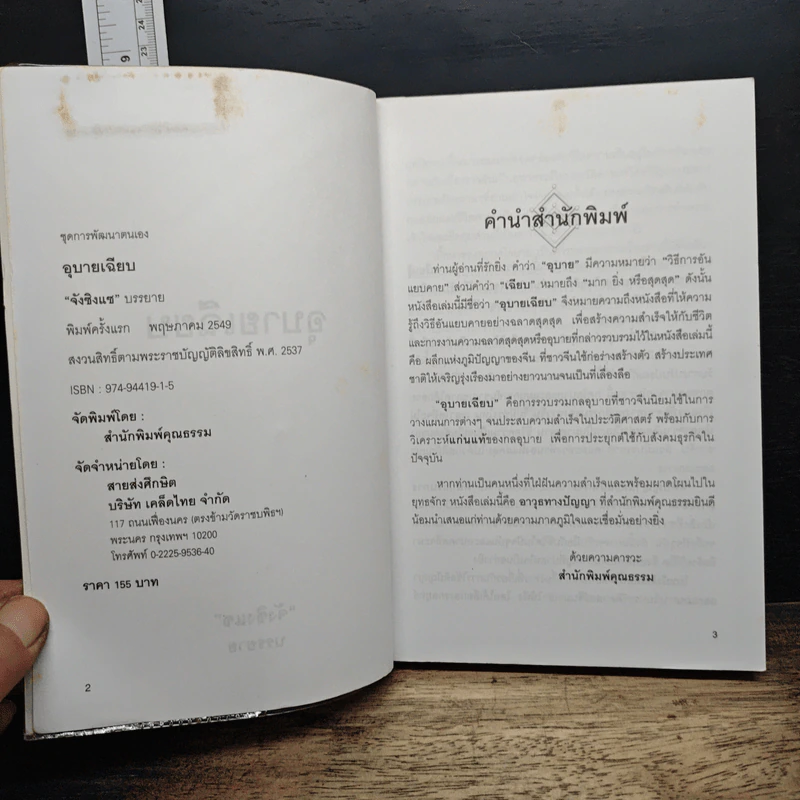 9
24
23
ชุดการพัฒนาตนเอง
อุบายเฉียบ
"จังซิงแซ" บรรยาย
พิมพ์ครั้งแรก พฤษภาคม 2549
สงวนสิทธิ์ตามพระราชบัญญัติลิขสิทธิ์ พ.ศ. 2537
ISBN : 974-94419-1-5
จัดพิมพ์โดย :
สำนักพิมพ์คุณธรรม
จัดจำหน่ายโดย :
สายส่งศึกษิต
บริษัท เคล็ดไทย จำกัด
117 ถนนเฟื่องนคร (ตรงข้ามวัดราชบพิธฯ)
พระนคร กรุงเทพฯ 10200
โทรศัพท์ 0-2225-9536-40
ราคา 155 บาท
2
คำนำสำนักพิมพ์
ท่านผู้อ่านที่รักยิ่ง คำว่า "อุบาย" มีความหมายว่า "วิธีการอัน
แยบคาย" ส่วนคำว่า "เฉียบ" หมายถึง "มาก ยิ่ง หรือสุดสุด" ดังนั้น
หนังสือเล่มนี้มีชื่อว่า "อุบายเฉียบ" จึงหมายความถึงหนังสือที่ให้ความ
รู้ถึงวิธีอันแยบคายอย่างฉลาดสุดสุด เพื่อสร้างความสำเร็จให้กับชีวิต
และการงานความฉลาดสุดสุดหรืออุบายที่กล่าวรวบรวมไว้ในหนังสือเล่มนี้
คือ ผลึกแห่งภูมิปัญญาของจีน ที่ชาวจีนใช้ก่อร่างสร้างตัว สร้างประเทศ
ชาติให้เจริญรุ่งเรืองมาอย่างยาวนานจนเป็นที่เลื่องลือ
"อุบายเฉียบ" คือการรวบรวมกลอุบายที่ชาวจีนนิยมใช้ในการ
วางแผนการต่างๆ จนประสบความสำเร็จในประวัติศาสตร์ พร้อมกับการ
วิเคราะห์แก่นแท้ของกลอุบาย เพื่อการประยุกต์ใช้กับสังคมธุรกิจใน
ปัจจุบัน
หากท่านเป็นคนหนึ่งที่ใฝ่ฝันความสำเร็จและพร้อมผาดโผนไปใน
ยุทธจักร หนังสือเล่มนี้คือ อาวุธทางปัญญา ที่สำนักพิมพ์คุณธรรมยินดี
น้อมนำเสนอแก่ท่านด้วยความภาคภูมิใจและเชื่อมั่นอย่างยิ่ง
ด้วยความคารวะ
สำนักพิมพ์คุณธรรม
3